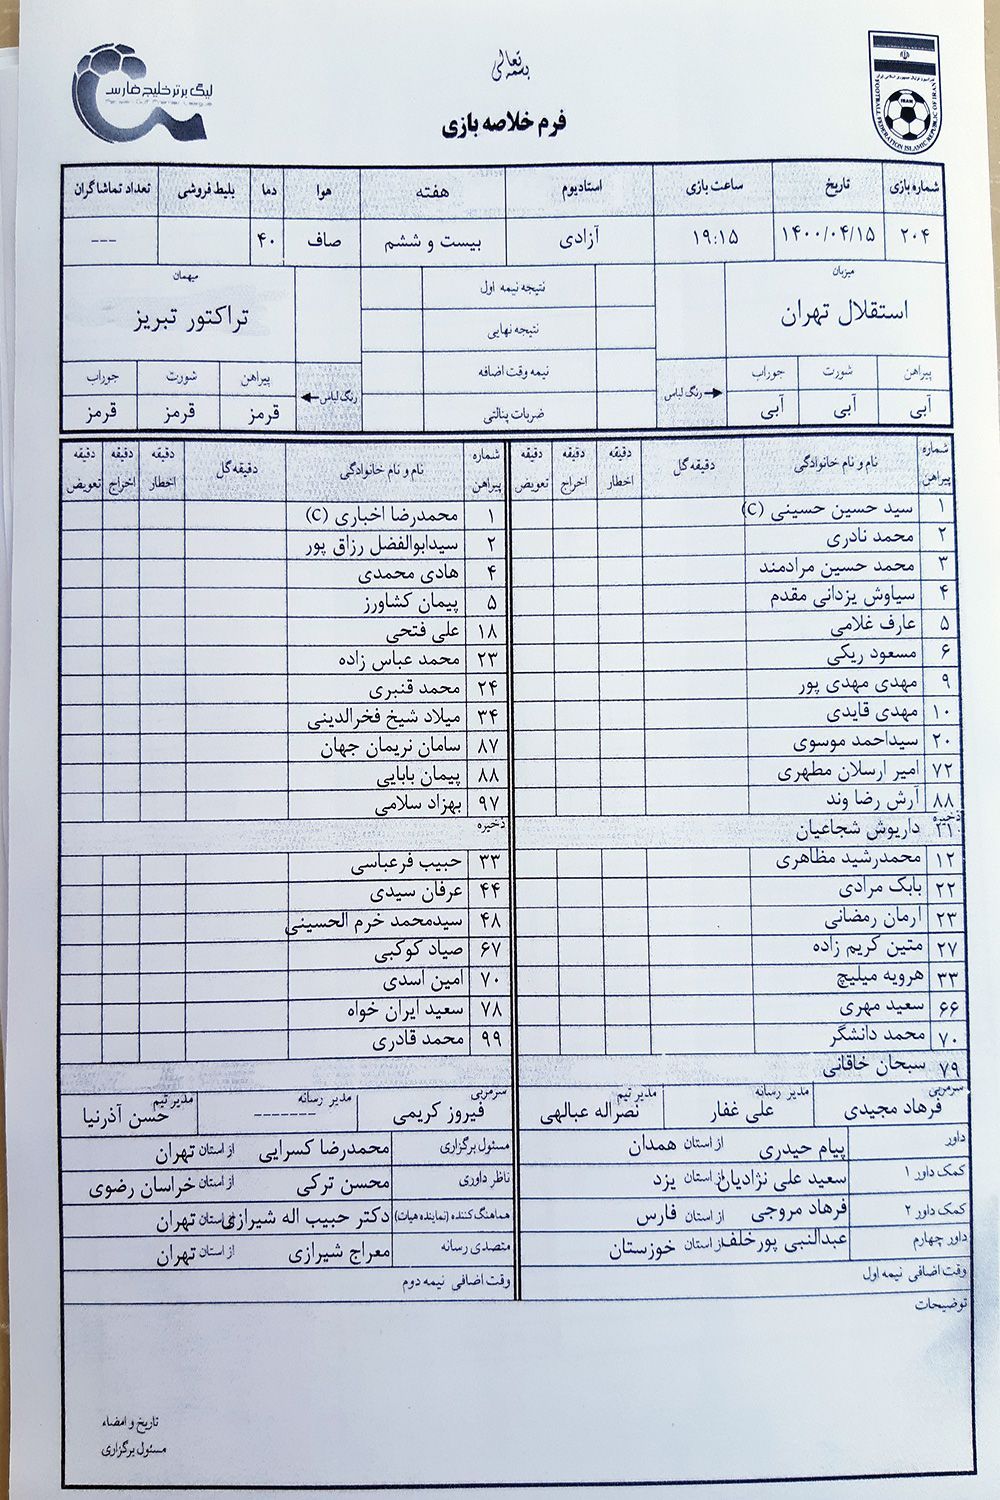 بسمه تعالی
لیگ برتر خلیج فارس
Persian Gulf Premier League
FOOTBALL FEDERATION ISLAMIC REPUBLIC OF IRAN
IRAN
فرم خلاصه بازی
شماره بازی تاریخ ساعت بازی استادیوم هفته هوا دما بلیط فروشی تعداد تماشاگران
۲۰۴ ۱۴۰۰/۰۴/۱۵ ۱۹:۱۵ آزادی بیست و ششم صاف ۴۰ ---
میزبان
استقلال تهران
میهمان
تراکتور تبریز
نتیجه نیمه اول
نتیجه نهایی
نیمه وقت اضافه
ضربات پنالتی
پیراهن شورت جوراب رنگ لباس
آبی آبی آبی
رنگ لباس پیراهن شورت جوراب
قرمز قرمز قرمز
شماره پیراهن نام و نام خانوادگی دقیقه گل دقیقه اخطار دقیقه اخراج دقیقه تعویض
۱ سید حسین حسینی (C)
۲ محمد نادری
۳ محمد حسین مرادمند
۴ سیاوش یزدانی مقدم
۵ عارف غلامی
۶ مسعود ریکی
۹ مهدی مهدی پور
۱۰ مهدی قایدی
۲۰ سیداحمد موسوی
۷۲ امیر ارسلان مطهری
۸۸ آرش رضا وند
ذخیره
۲۱ داریوش شجاعیان
۱۲ محمدرشید مظاهری
۲۲ بابک مرادی
۲۳ آرمان رمضانی
۲۷ متین کریم زاده
۳۳ هرویه میلیچ
۶۶ سعید مهری
۷۰ محمد دانشگر
۷۹ سبحان خاقانی
شماره پیراهن نام و نام خانوادگی دقیقه گل دقیقه اخطار دقیقه اخراج دقیقه تعویض
۱ محمدرضا اخباری (C)
۲ سیدابوالفضل رزاق پور
۴ هادی محمدی
۵ پیمان کشاورز
۱۸ علی فتحی
۲۳ محمد عباس زاده
۲۴ محمد قنبری
۳۴ میلاد شیخ فخرالدینی
۸۷ سامان نریمان جهان
۸۸ پیمان بابایی
۹۷ بهزاد سلامی
ذخیره
۳۳ حبیب فرعباسی
۴۴ عرفان سیدی
۴۸ سیدمحمد خرم الحسینی
۶۷ صیاد کوکبی
۷۰ امین اسدی
۷۸ سعید ایران خواه
۹۹ محمد قادری
سرمربی فرهاد مجیدی مدیر رسانه علی غفار مدیر تیم نصراله عبالهی
سرمربی فیروز کریمی مدیر رسانه ------- مدیر تیم حسن آذرنیا
داور پیام حیدری از استان همدان
کمک داور ۱ سعید علی نژادیان از استان یزد
کمک داور ۲ فرهاد مروجی از استان فارس
داور چهارم عبدالنبی پورخلف از استان خوزستان
وقت اضافی نیمه اول
مسئول برگزاری محمدرضا کسرایی از استان تهران
ناظر داوری محسن ترکی از استان خراسان رضوی
هماهنگ کننده (نماینده هیات) دکتر حبیب اله شیرازی از استان تهران
متصدی رسانه معراج شیرازی از استان تهران
وقت اضافی نیمه دوم
توضیحات
تاریخ و امضاء
مسئول برگزاری